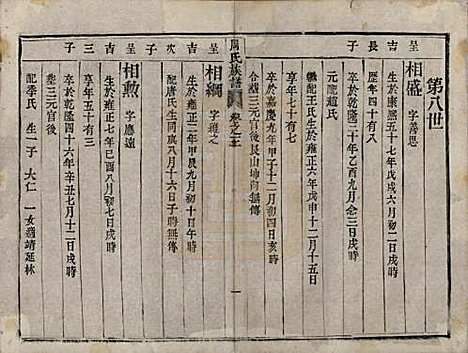 第八世
呈吉長子
相盛 字善思
生於康熙五十七年戊戌六月初二日戌時
歷年四十有八
卒於乾隆三十年乙酉九月念三日戌時
元配趙氏
繼配王氏生於雍正六年戊申十二月十五日
卒於嘉慶九年甲子十二月初四日亥時
享年七十有七
合葬三元官後艮山坤向無傳
周氏族譜
卷之
一
呈吉次子
相綱 字維之
生於雍正二年甲辰九月初十日午時
配唐氏生同歲八月十六日子時無傳
葬三元官後
呈吉三子
相勲 字應遠
生於雍正七年己酉八月初七日戌時
享年五十有三
卒於乾隆四十六年辛丑七月十二日戌時
葬三元官後
配季氏 生一子 大仁 一女適靖延林